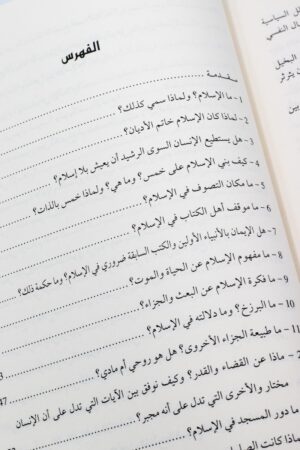 الفهرس
مقدمة
1 - ما الإسلام؟ ولماذا سمي كذلك؟
2 - لماذا كان الإسلام خاتم الأديان؟
3 - هل يستطيع الإنسان السوى الرشيد أن يعيش بلا إسلام؟
4 - كيف بني الإسلام على خمس؟ وما هي؟ ولماذا خمس بالذات؟
5 - ما مكان التصوف في الإسلام؟
6 - ما موقف أهل الكتاب في الإسلام؟
7 - هل الإيمان بالأنبياء الأولين والكتب السابقة ضروري في الإسلام؟ وما حكمة ذلك؟
8 - ما مفهوم الإسلام عن الحياة والموت؟
9 - ما فكرة الإسلام عن البعث والجزاء؟
10 - ما البرزخ؟ وما دلالته في الإسلام؟
ما طبيعة الجزاء الأخروى؟ هل هو روحي أم مادي؟
ماذا عن القضاء والقدر؟ وكيف نوفق بين الآيات التي تدل على أن الإنسان
مختار والأخرى التي تدل على أنه مجبر؟
ما دور المسجد في الإسلام؟
لماذا كانت
ل السياسية
ال النفسي
البخيل